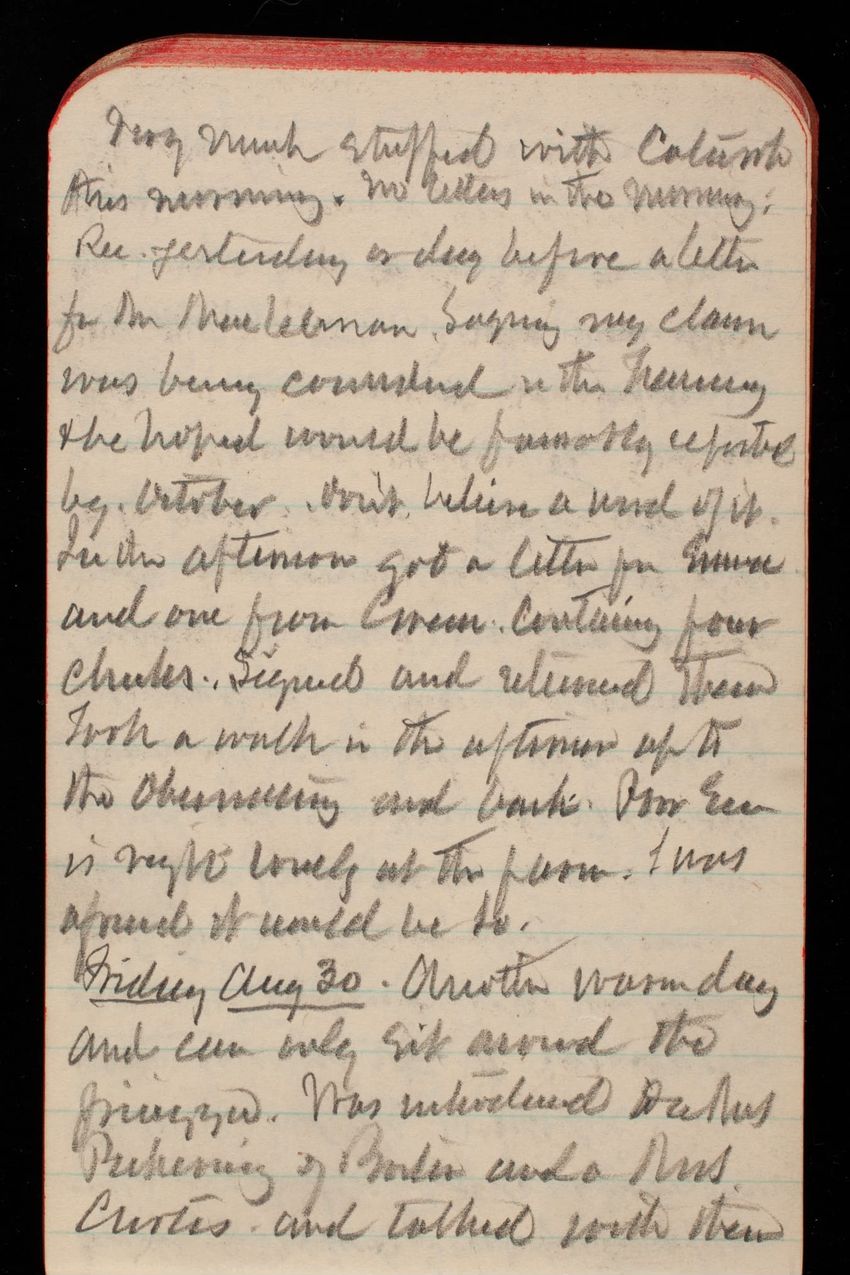 Very much stuffed with Catarrh
this morning. No letters in the morning.
Rec. yesterday or day before a letter
fr Mr saying my claim
was being considered in the Treasury
& he hoped would be favorably reported
by October. Don't believe a word of it.
In the afternoon got a letter fr Emma
and one from Cowen. Containing four
checks. Signed and returned them
Took a walk in the afternoon up to
the Observatory and back. Poor Em
is right lonely at the farm. I was
afraid it would be so.
Friday Aug 30. Another warm day
and can only sit around the
piazza. Was introduced to a Mrs
Pickering of Boston and a Mrs
Curtis and talked with them